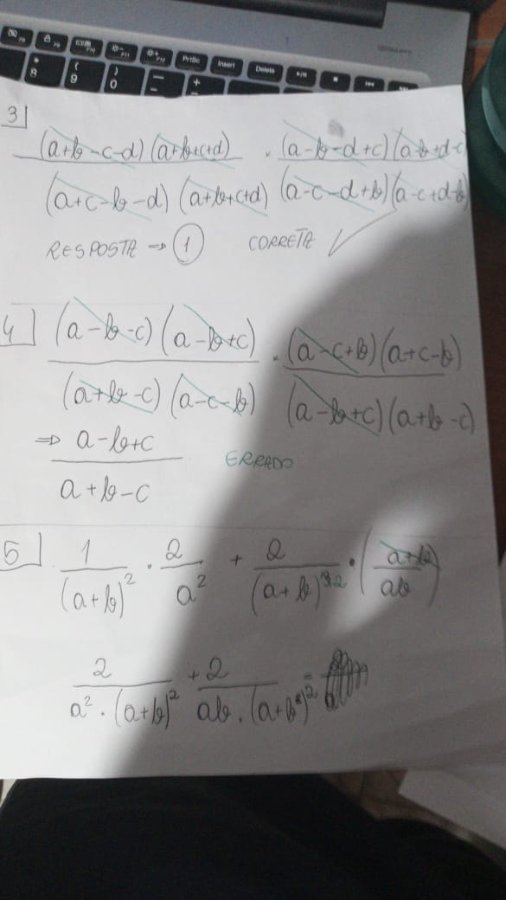 Prtsc Insert Delete
8 9 0
3]
(a+b-c-d)(a+b+c+d) . (a-b-d+c)(a-b+d-c)
(a+c-b-d)(a+b+c+d) (a-c-d+b)(a-c+d-b)
RESPOSTA → 1 CORRETA ✓
4] (a-b-c)(a-b+c) . (a-c+b)(a+c-b)
(a+b-c)(a-c-b) (a-b+c)(a+b-c)
⇒ a-b+c ERRADO
a+b-c
5] 1 . 2 + 2 . (a+b)
(a+b)² a² (a+b)³² ab
2 + 2 =
a² . (a+b)² ab . (a+b)²